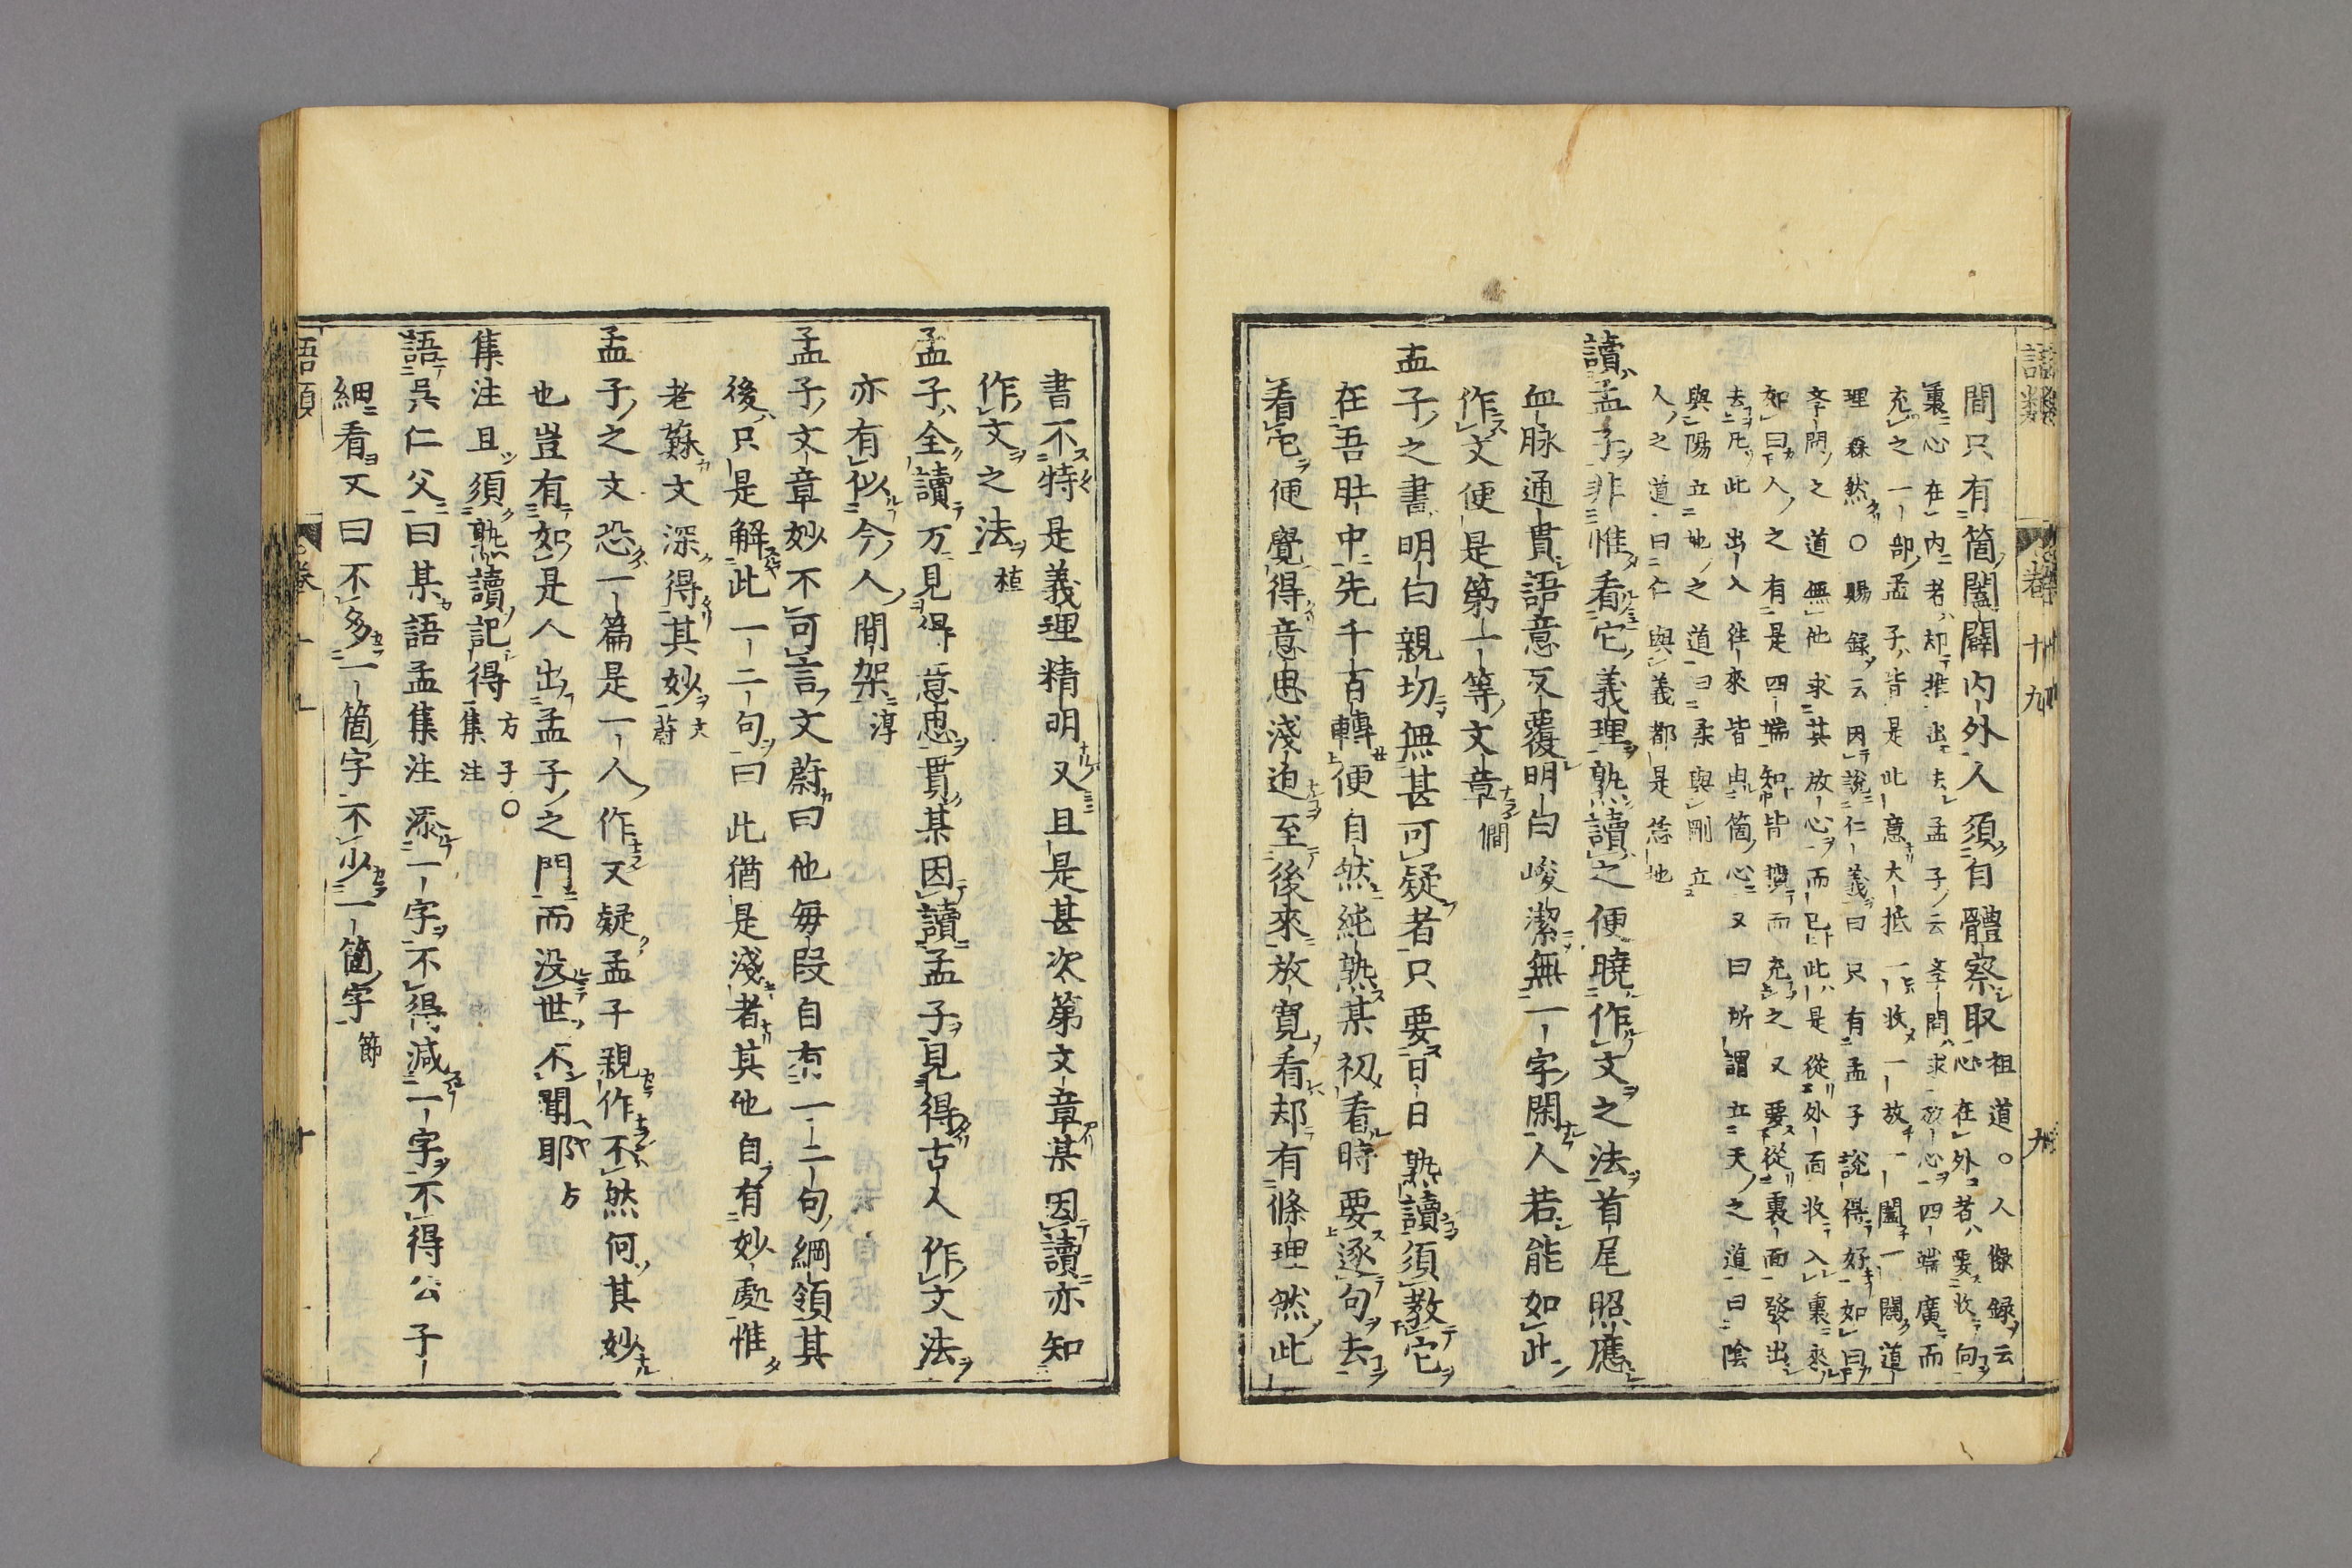 語類 卷十九 九
間只有箇闔闢内外人須自體察取祖道。人傑録云
心在外者要收向
裏心在内者却推出去孟子云學問求放心四端廣而
充之一部孟子皆是此意大抵一收一放一闔一闢道
理森然○賜録云因說仁義曰只有孟子說得好如曰
學問之道無他求其放心而已此是從外面收入裏來
如曰人之有是四端知皆擴而充之又要從裏面發出
去凡此出入往來皆由箇心又曰所謂立天之道曰陰
與陽立地之道曰柔與剛立
人之道曰仁與義都是恁地
讀孟子非惟看它義理熟讀之便曉作文之法首尾照應
血脉通貫語意反覆明白峻潔無一字閑人若能如此
作文便是第一等文章僩
孟子之書明白親切無甚可疑者只要日日熟讀須教它
在吾肚中先千百轉便自然純熟某初看時要逐句去
看它便覺得意思淺迫至後來放寛看却有條理然此
書不特是義理精明又且是甚次第文章某因讀亦知
作文之法植
孟子全讀方見得意思貫某因讀孟子見得古人作文法
亦有似今人間架淳
孟子文章妙不可言文蔚曰他每段自有一二句綱領其
後只是解此一二句曰此猶是淺者其他自有妙處惟
老蘇文深得其妙文
蔚
孟子之文恐一篇是一人作又疑孟子親作不然何其妙
也豈有如是人出孟子之門而没世不聞耶方
集注且須熟讀記得方子○
集注
語吳仁父曰某語孟集注添一字不得減一字不得公子
細看又曰不多一箇字不少一箇字節
語類 卷十九 十